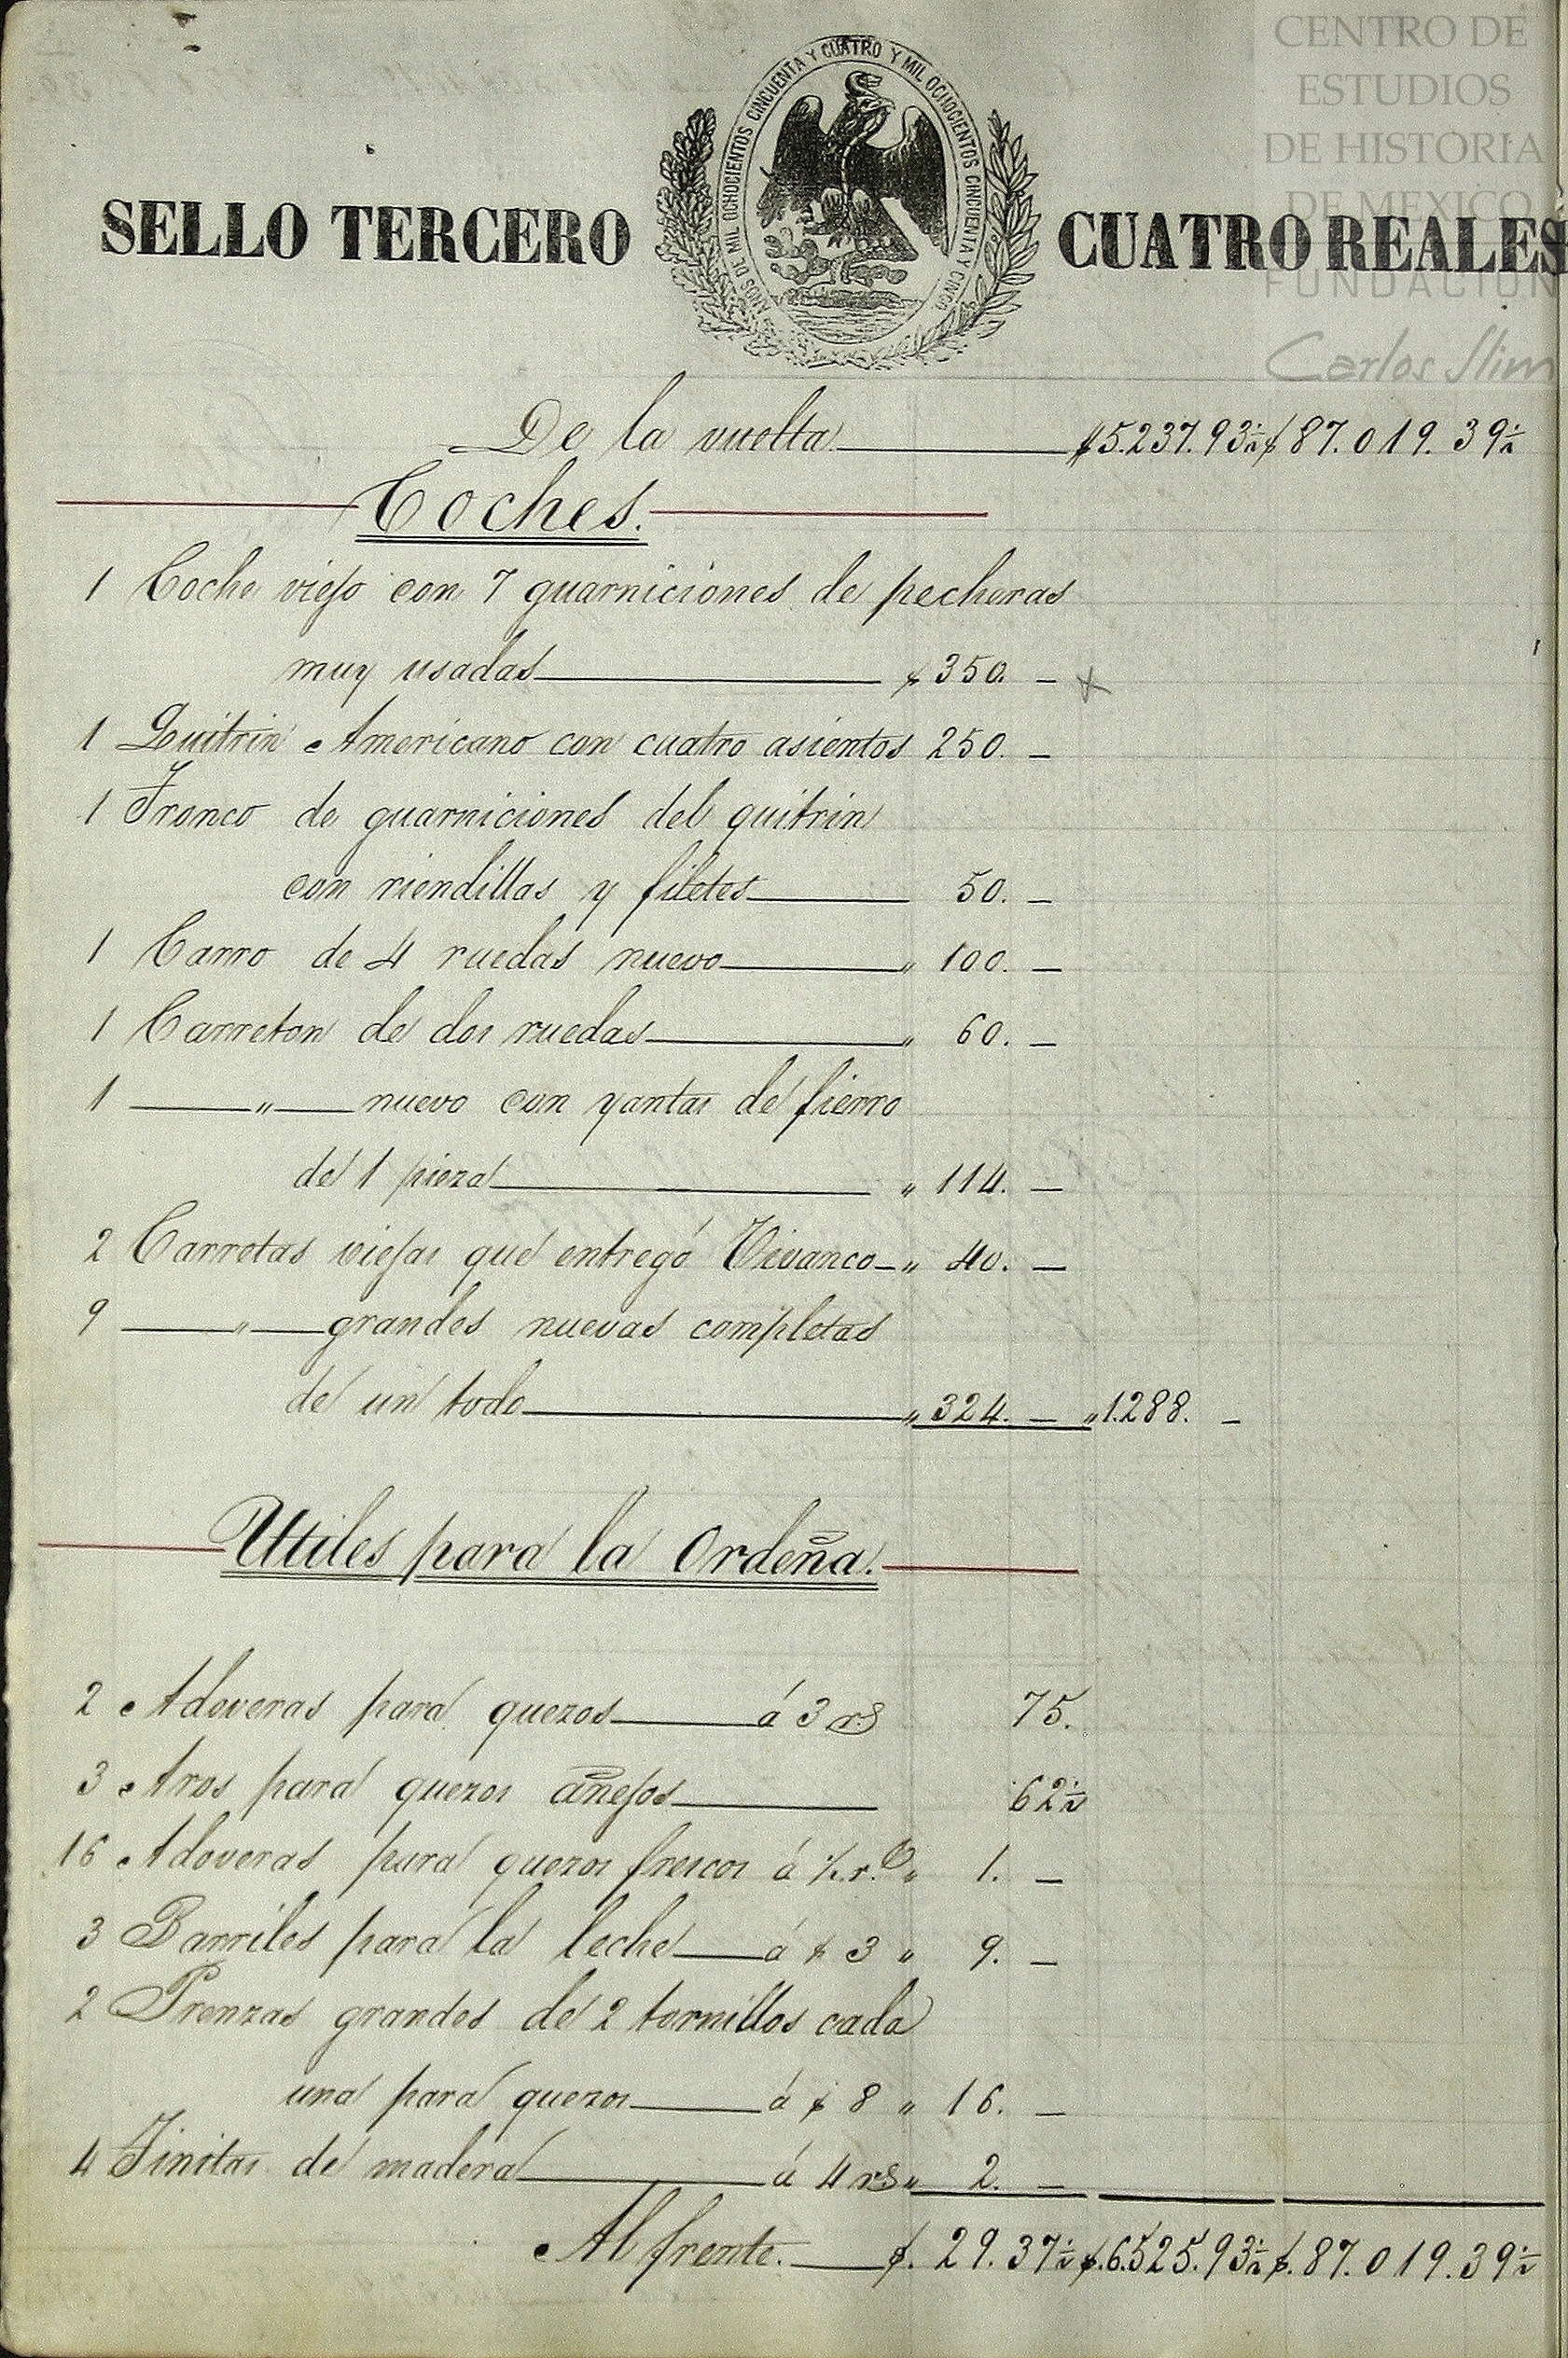 CENTRO DE
ESTUDIOS
DE HISTORIA
DE MEXICO
FUNDACIÓN
Carlos Slim
AÑOS DE MIL OCHOCIENTOS CINCUENTA Y CUATRO Y MIL OCHOCIENTOS CINCUENTA Y CINCO.
SELLO TERCERO CUATRO REALES
De la vuelta $5.237.93½ $87.019.39½
Coches.
1 Coche viejo con 7 guarniciones de pecheras
muy usadas $350. —
1 Quitrin Americano con cuatro asientos 250. —
1 Tronco de guarniciones del quitrin
con riendillas y filetes 50. —
1 Carro de 4 ruedas nuevo „ 100. —
1 Carreton de dos ruedas „ 60. —
1 —„— nuevo con yantas de fierro
de 1 pieza „ 114. —
2 Carretas viejas que entregó Vivanco „ 40. —
9 —„— grandes nuevas completas
de un todo „ 324. — „1.288. —
Utiles para la Ordeña.
2 Adoveras para quezos á 3 rs 75.
3 Aros para quezos añejos 62½
16 Adoveras para quezos frescos á ½ r.º „ 1. —
3 Barriles para la leche á $3 „ 9. —
2 Prenzas grandes de 2 tornillos cada
una para quezos á $8 „ 16. —
4 Tinitas de madera á 4 rs „ 2. —
Al frente. $. 29.37½ $.6.525.93½ $.87.019.39½